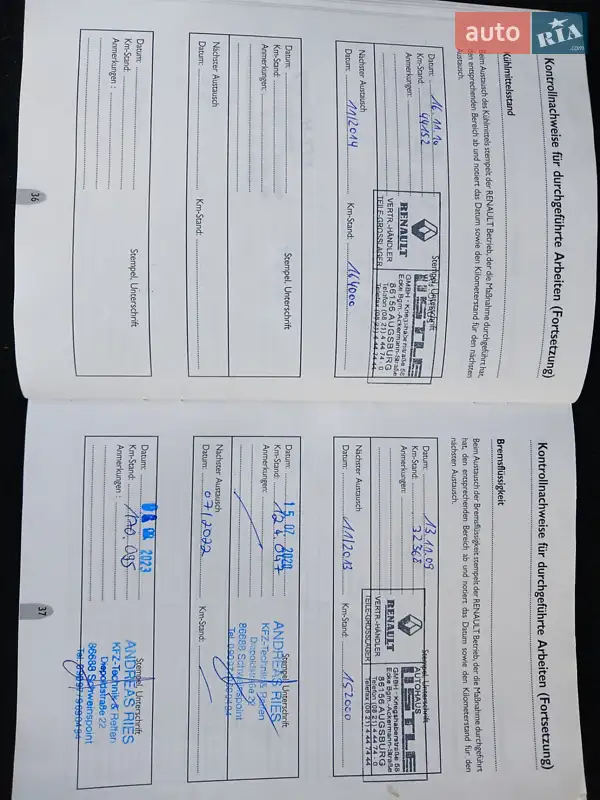 auto
RIA
.com
Kontrollnachweise für durchgeführte Arbeiten (Fortsetzung)
Kühlmittelstand
Beim Austausch des Kühlmittels stempelt der RENAULT Betrieb, der die Maßnahme durchgeführt hat,
den entsprechenden Bereich ab und notiert das Datum sowie den Kilometerstand für den nächsten
Austausch.
Datum: 16.11.10
Km-Stand: 44152
Anmerkungen:
Stempel, Unterschrift
RENAULT
VERTR.-HÄNDLER
TEILE-GROSSLAGER
GMBH · Kriegshaberstraße 58
Ecke Bgm.-Ackermann-Straße
86156 AUGSBURG
Telefon (08 21) 4 44 74 - 0
Telefax (08 21) 4 44 74 44
Nächster Austausch
Datum: 11/2014
Km-Stand: 164000
Datum:
Km-Stand:
Anmerkungen:
Stempel, Unterschrift
Nächster Austausch
Datum:
Km-Stand:
Datum:
Km-Stand:
Anmerkungen :
Stempel, Unterschrift
36
Kontrollnachweise für durchgeführte Arbeiten (Fortsetzung)
Bremsflüssigkeit
Beim Austausch der Bremsflüssigkeit stempelt der RENAULT Betrieb, der die Maßnahme durchgeführt
hat, den entsprechenden Bereich ab und notiert das Datum sowie den Kilometerstand für den
nächsten Austausch.
Datum: 13.11.09
Km-Stand: 32368
Anmerkungen:
Stempel, Unterschrift
RENAULT
VERTR.-HÄNDLER
TEILE-GROSSLAGER
AUTOHAUS
GMBH · Kriegshaberstraße 58
Ecke Bgm.-Ackermann-Straße
86156 AUGSBURG
Telefon (08 21) 4 44 74 - 0
Telefax (08 21) 4 44 74 44
Nächster Austausch
Datum: 11/2013
Km-Stand: 152000
Datum: 15. 07. 2020
Km-Stand: 124.047
Anmerkungen:
Stempel, Unterschrift
ANDREAS RIES
KFZ-Technik & Reifen
Diepoldstraße 22
86688 Schweinspoint
Nächster Austausch
Datum: 07/2022
Km-Stand:
Datum: 2023
Km-Stand: 170.095
Anmerkungen :
Stempel, Unterschrift
ANDREAS RIES
KFZ-Technik & Reifen
Diepoldstraße 22
86688 Schweinspoint
37